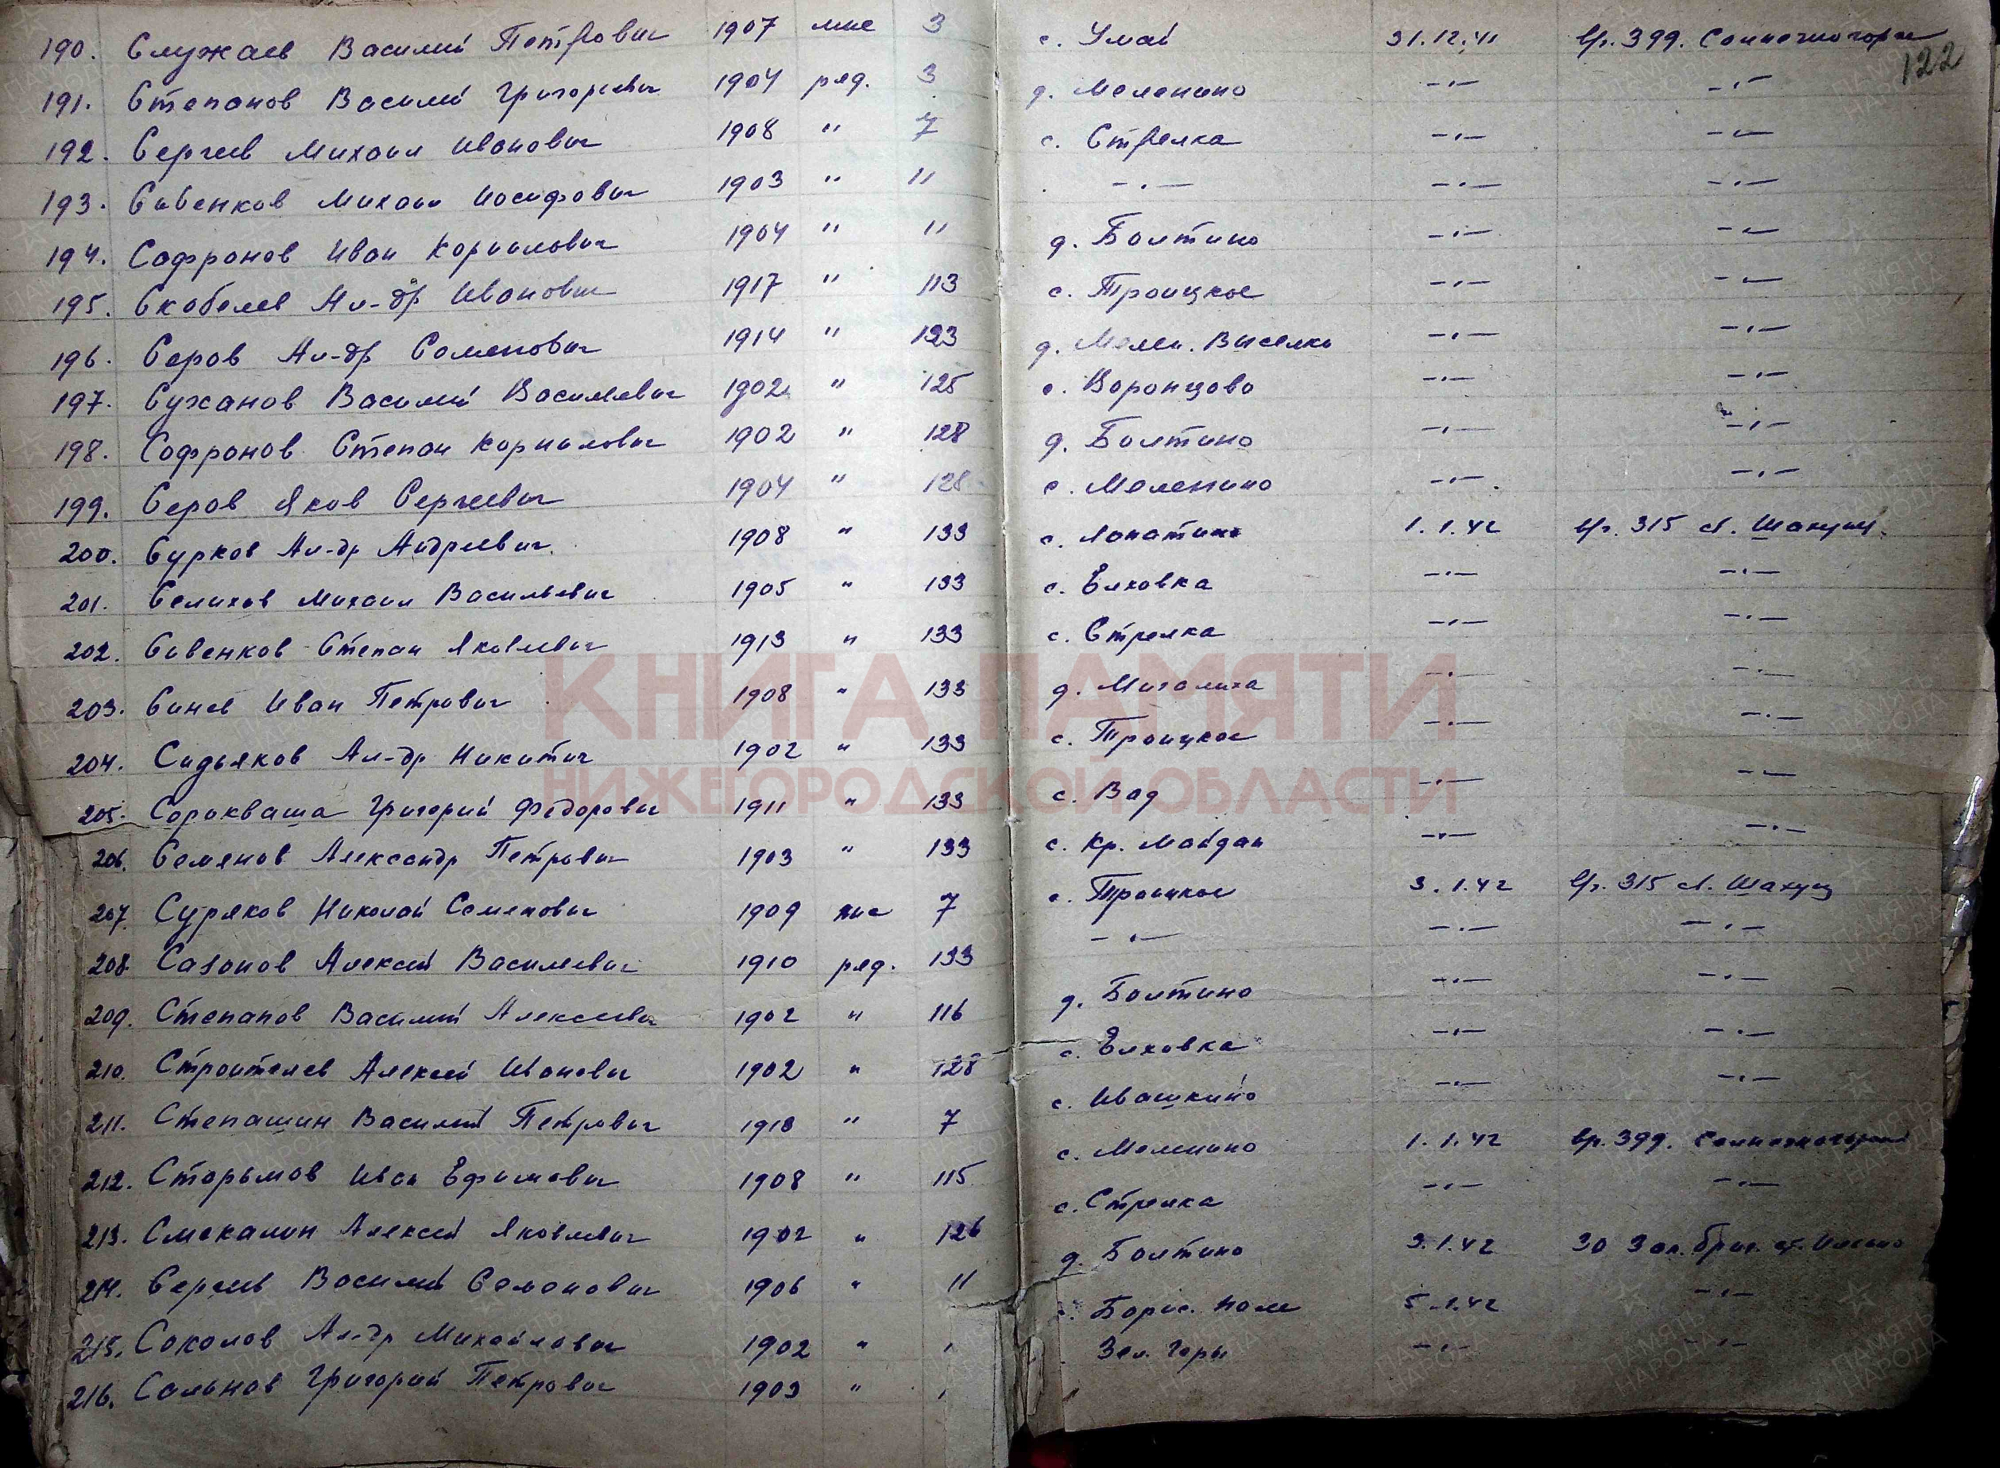 190. Служаев Василий Петрович 1907 мнс 3 с. Умай 31.12.41 вр. 399. Солнечногорск
122
191. Степанов Василий Григорьевич 1904 ряд. 3 д. Меленино —·— —·—
192. Сергеев Михаил Иванович 1908 " 7 с. Стрелка —·— —·—
193. Савенков Михаил Иосифович 1903 " 11 —·— —·— —·—
194. Софронов Иван Корнилович 1904 " 11 д. Болтино —·— —·—
195. Скобелев Ал-др Иванович 1917 " 113 с. Троицкое —·— —·—
196. Серов Ал-др Семенович 1914 " 123 д. Мелен. Выселки —·— —·—
197. Суханов Василий Васильевич 1902 " 125 с. Воронцово —·— —·—
198. Софронов Степан Корнилович 1902 " 128 д. Болтино —·— —·—
199. Серов Яков Сергеевич 1904 " 128 с. Меленино —·— —·—
200. Сурков Ал-др Андреевич 1908 " 133 с. Лопатино 1.1.42 вр. 315 ст. Шахун.
201. Селихов Михаил Васильевич 1905 " 133 с. Елховка —·— —·—
202. Савенков Степан Яковлевич 1913 " 133 с. Стрелка —·— —·—
203. Синев Иван Петрович 1908 " 133 д. Мигалиха —·— —·—
204. Сидьяков Ал-др Никитич 1902 " 133 с. Троицкое —·— —·—
205. Сорокваша Григорий Федорович 1911 " 133 с. Вад —·— —·—
206. Семянов Александр Петрович 1903 " 133 с. Кр. Майдан —·— —·—
207. Суряков Николай Семенович 1909 мнс 7 с. Троицкое 3.1.42 вр. 315 ст. Шахун
208. Сазонов Алексей Васильевич 1910 ряд. 133 —·— —·— —·—
209. Степанов Василий Алексеевич 1902 " 116 д. Болтино —·— —·—
210. Строителев Алексей Иванович 1902 " 128 с. Елховка —·— —·—
211. Степашин Василий Петрович 1913 " 7 с. Ивашкино —·— —·—
212. Старымов Иван Ефимович 1908 " 115 с. Меленино 1.1.42 вр. 399. Солнечногорск
213. Смекалин Алексей Яковлевич 1902 " 126 с. Стрелка —·— —·—
214. Сергеев Василий Семенович 1906 " 11 д. Болтино 3.1.42 30 Зап. бриг. ст.
215. Соколов Ал-др Михайлович 1902 " Борис. Поле 5.1.42 —·—
216. Сальнов Григорий Петрович 1903 " Зел. Горы —·— —·—
КНИГА ПАМЯТИ
НИЖЕГОРОДСКОЙ ОБЛАСТИ